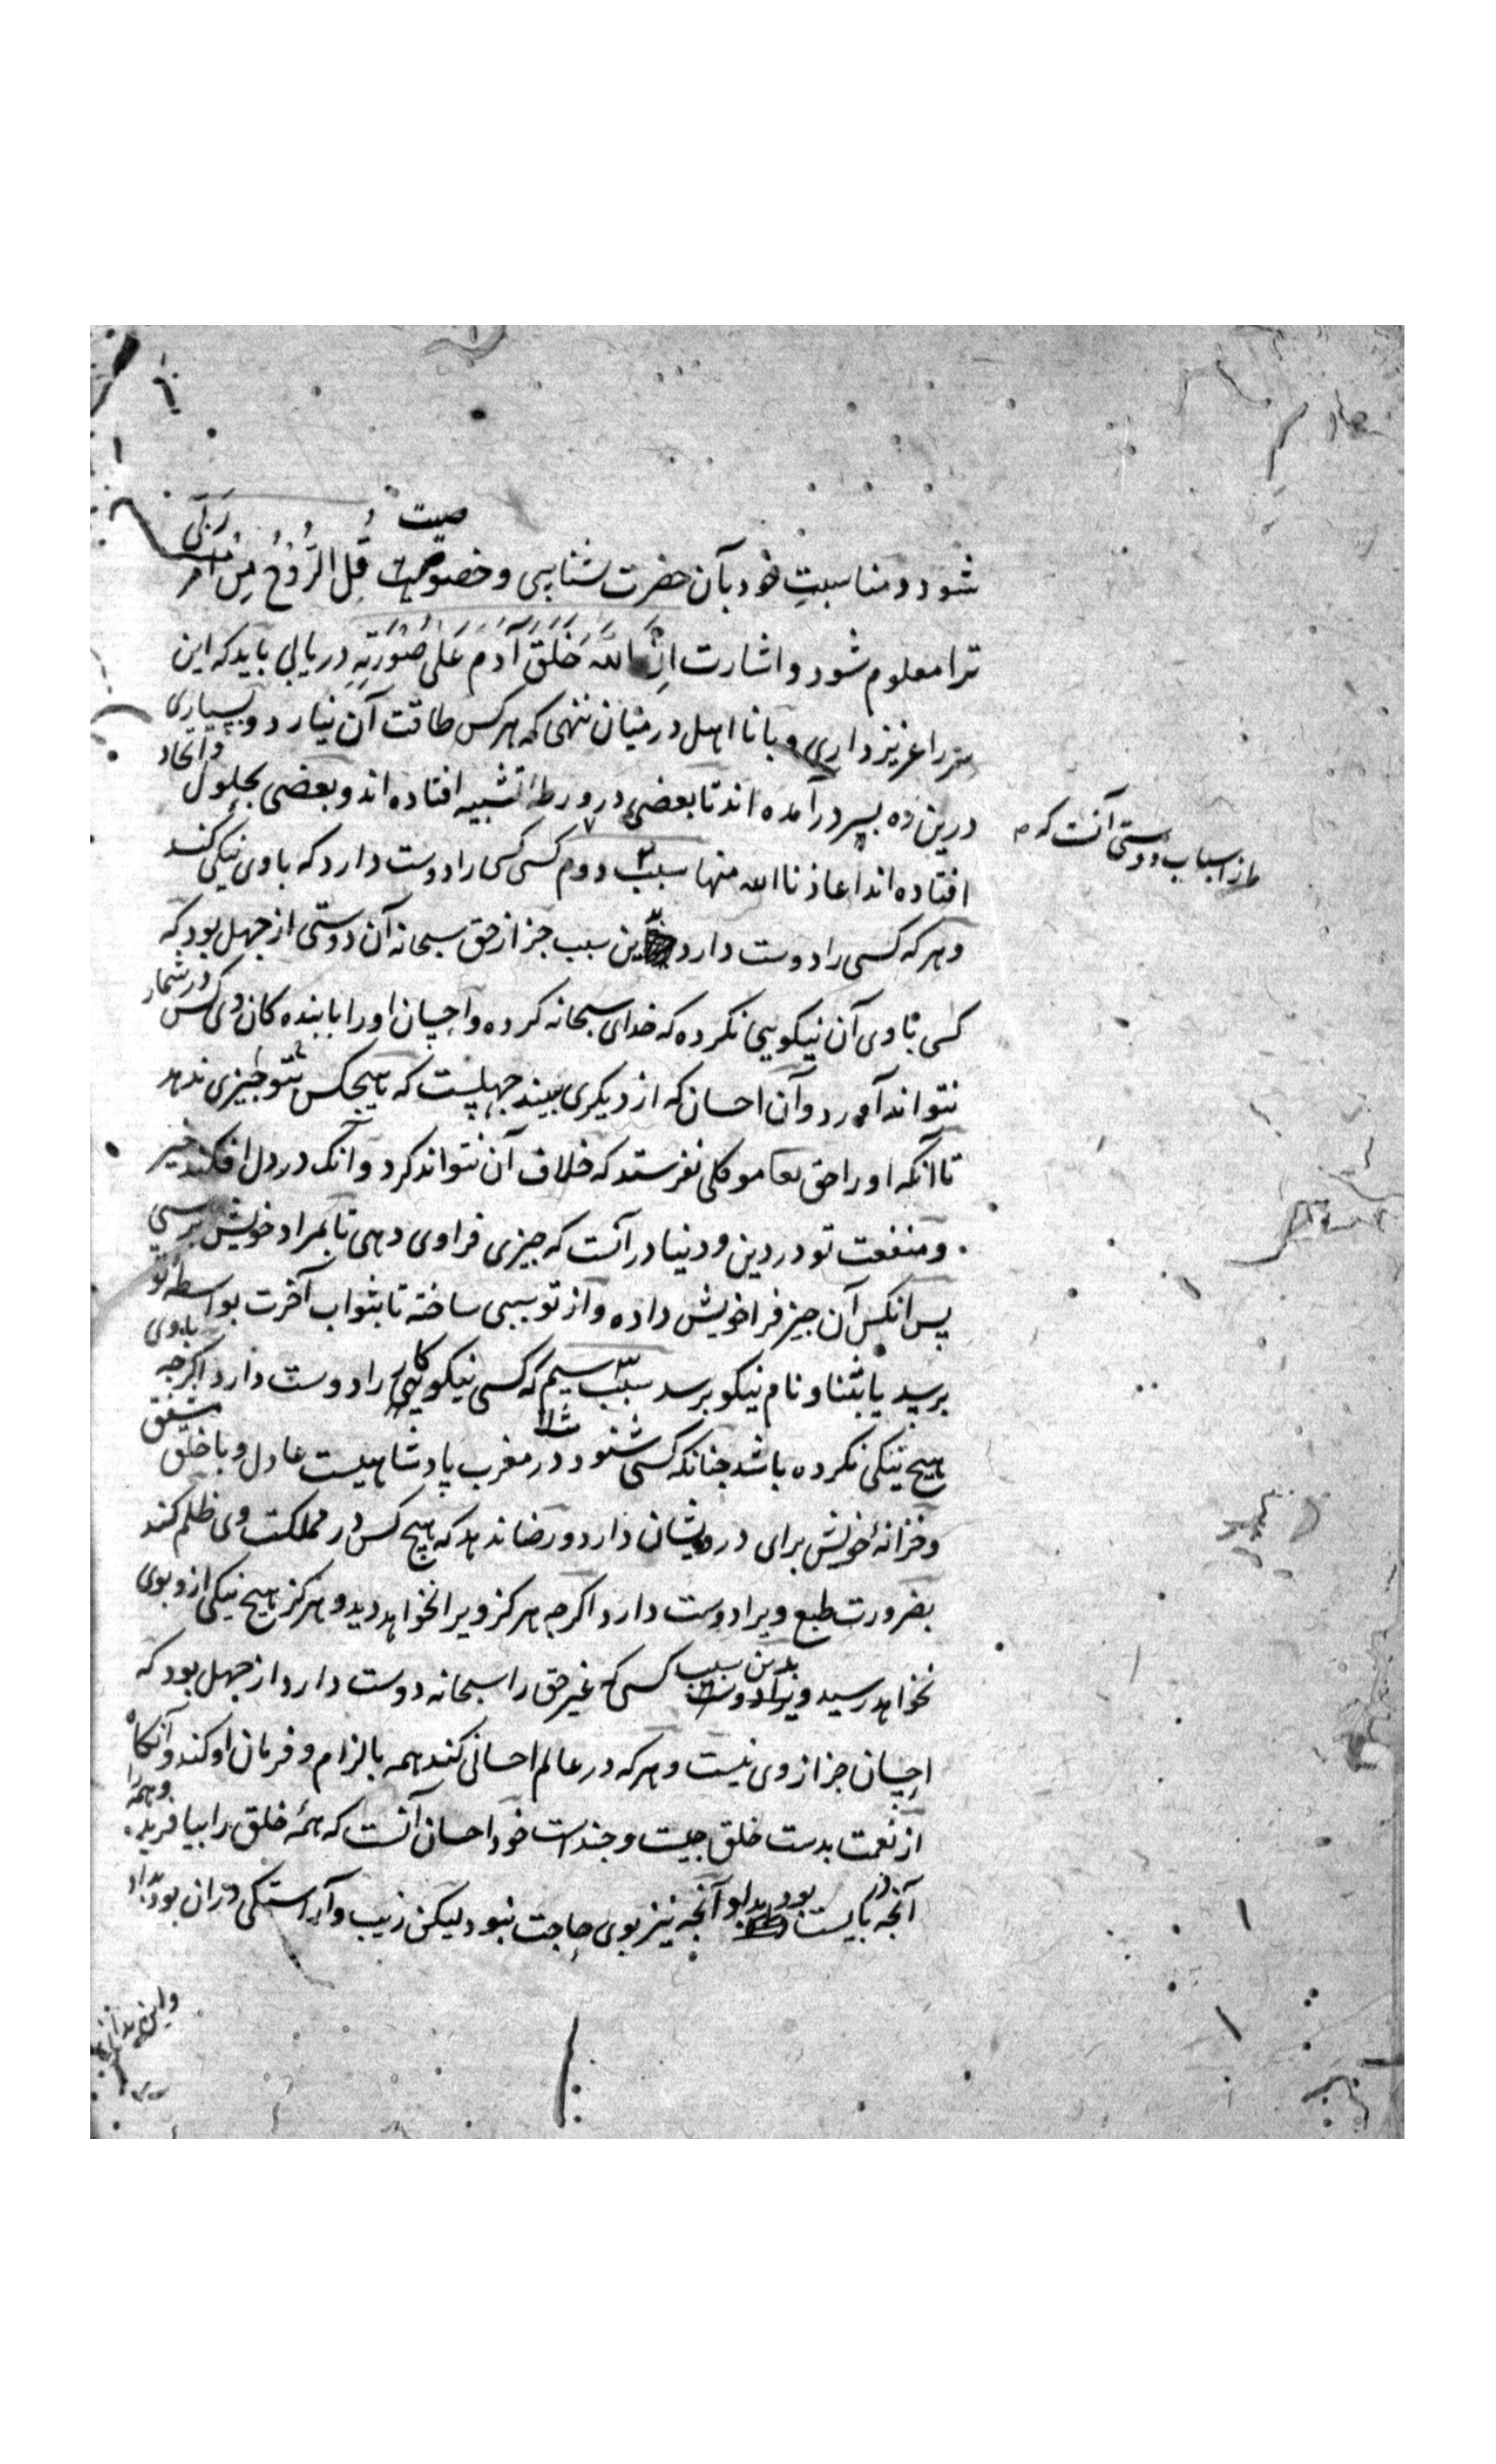 شود و مناسبتِ خود بآن حضرت بشناسی و خصوصیت قُلِ الرُّوْحُ مِنْ اَمْرِ رَبِّی
ترا معلوم شود و اشارت اِنَّ اللهَ خَلَقَ آدَمَ عَلَی صُوْرَتِهِ دریابی باید که این
سر را عزیز داری و با نا اهل در میان ننهی که هر کس طاقت آن نیارد و بسیاری
درین ره بسر در آمده اند تا بعضی در ورطهٔ تشبیه افتاده اند و بعضی بحلول و اتحاد
از اسباب دوستی آنست که
افتاده اند اعاذنا الله منها سبب دوم کسی کسی را دوست دارد که با وی نیکی کند
و هر که کسی را دوست دارد بدین سبب جز از حق سبحانه آن دوستی از جهل بود که
کسی با وی آن نیکویی نکرده که خدای سبحانه کرده و احسان او را با بنده کان وی کس در شمار
نتواند آورد و آن احسان که از دیکری بیند جهلیست که هیچکس بتو چیزی ندهد
تا آنکه او را حق تعا موکلی نفرستد که خلاف آن نتواند کرد و آنک در دل افکند خیر
و منفعت تو در دین و دنیا در آنست که چیزی فرا وی دهی تا بمراد خویش برسی
پس آنکس آن چیز فرا خویش داده و از تو سببی ساخته تا بثواب آخرت بواسطه تو
برسد یا بثنا و نام نیکو برسد سبب سیم که کسی نیکوکاری را دوست دارد اکرچه با وی
هیچ نیکی نکرده باشد چنانکه کسی شنود مثلا در مغرب پادشاهیست عادل و با خلق مشفق
و خزانهٔ خویش برای درویشان دارد و رضا ندهد که هیچ کس در مملکت وی ظلم کند
بضرورت طبع ویرا دوست دارد اکرچه هرکز ویرا نخواهد دید و هرکز هیچ نیکی ازو بوی
نخواهد رسید بدین سبب کسی که غیر حق را سبحانه دوست دارد از جهل بود که
احسان جز از وی نیست و هر که در عالم احسانی کند همه بالزام و فرمان او کند و آنکاه
از نعمت بدست خلق چیست و چند است خود احسان آنست که همهٔ خلق را بیافریده و همه را
آنچه در بایست بود بداد و آنچه نیز بوی حاجت نبود لیکن زیب و آراستکی در آن بود بداد